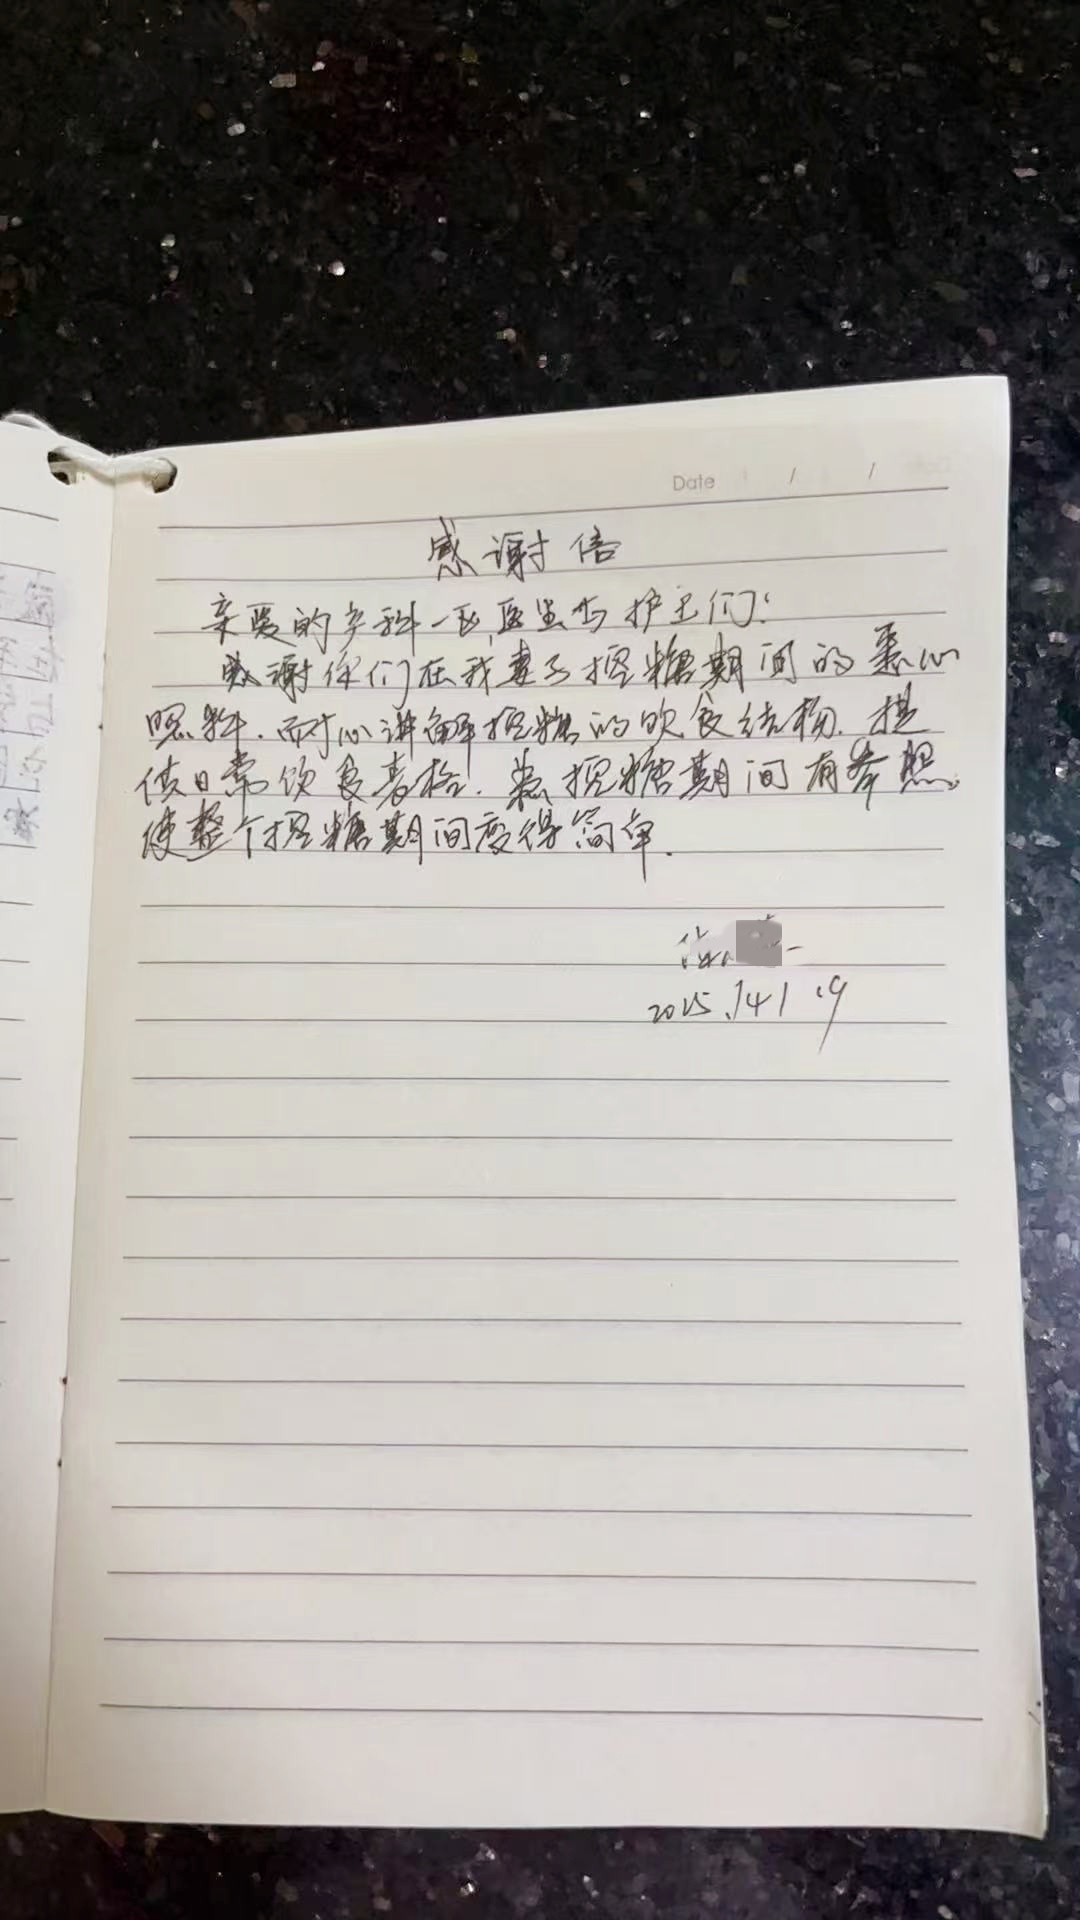 Date / /
感谢信
亲爱的产科一区医生与护士们:
感谢你们在我妻子控糖期间的悉心
照料.耐心讲解控糖的饮食结构.提
供日常饮食表格.养控糖期间有参照.
使整个控糖期间变得简单.
2025.